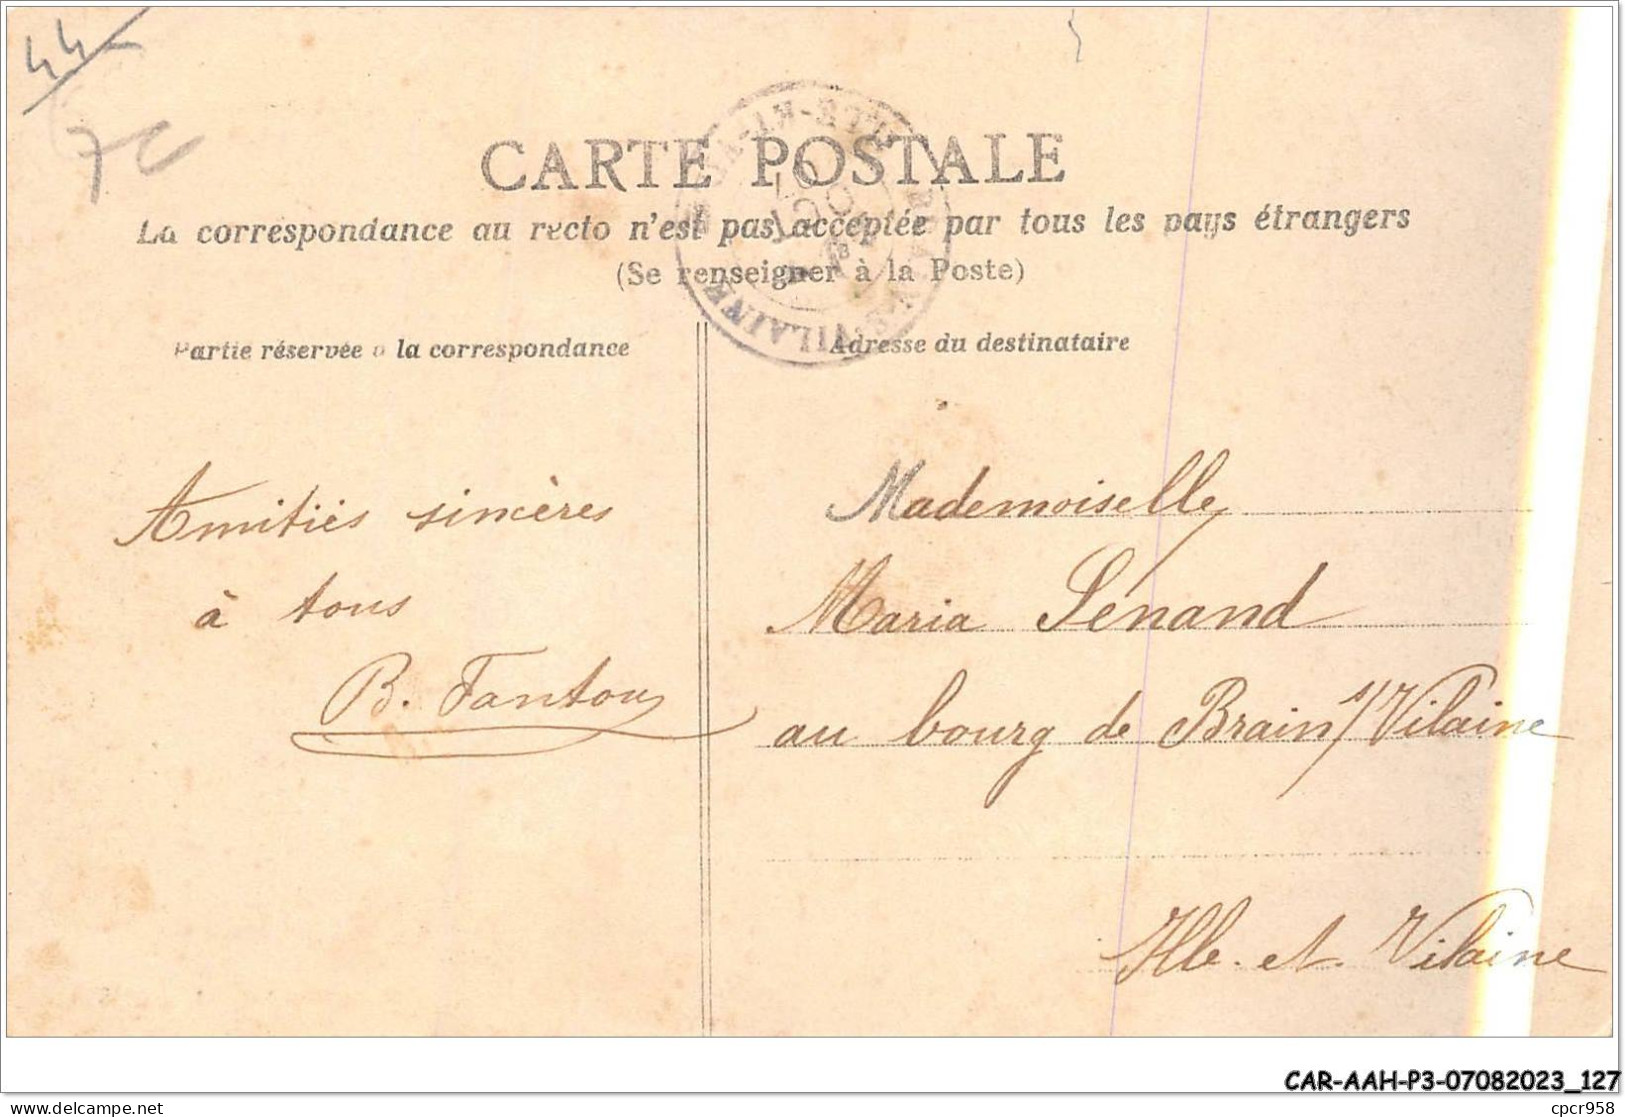 44
CARTE POSTALE
La correspondance au recto n'est pas acceptée par tous les pays étrangers
(Se renseigner à la Poste)
Partie réservée à la correspondance
Adresse du destinataire
Amitiés sincères
à tous
B. Fantou
Mademoiselle
Maria Senand
au bourg de Brain s/ Vilaine
Ille-et-Vilaine
VILAINE
CAR-AAH-P3-07082023_127
cpcr958